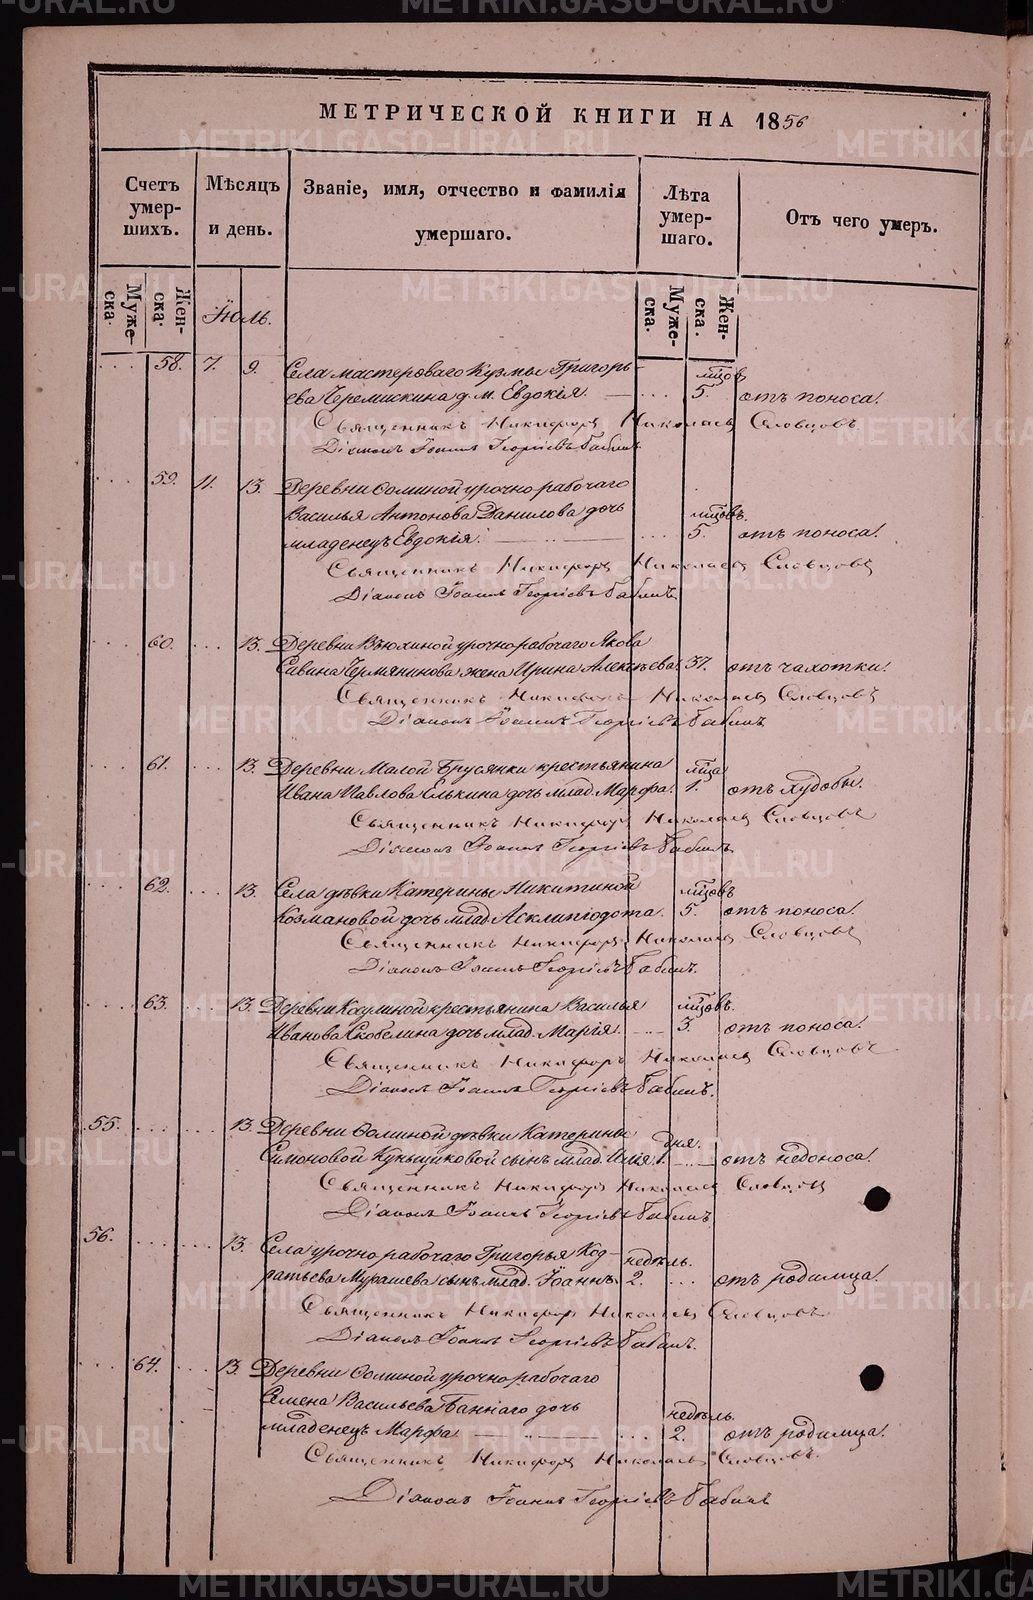 МЕТРИЧЕСКОЙ КНИГИ НА 1856
Счетъ умер-шихъ.
Мѣсяцъ и день.
Званіе, имя, отчество и фамилія умершаго.
Лѣта умер-шаго.
Отъ чего умеръ.
Муже-ска.
Жен-ска.
Іюль.
Муже-ска.
Жен-ска.
58. 7. 9. Села мастероваго Кузмы Григорь- мцовъ
ева Черемискина д. м. Евдокія. 5. отъ поноса.
Священникъ Никифоръ Николаевъ Словцовъ
Діаконъ Іоаннъ Георгіевъ Бабинъ
59. 11. 13. Деревни Ѳоминой урочнорабочаго
Василья Антонова Данилова дочь мцовъ.
младенецъ Евдокія. 5. отъ поноса.
Священникъ Никифоръ Николаевъ Словцовъ
Діаконъ Іоаннъ Георгіевъ Бабинъ
60. 13. Деревни Вьюхиной урочнорабочаго Якова
Савина Чермянинова жена Ирина Алексѣева. 37. отъ чахотки.
Священникъ Никифоръ Николаевъ Словцовъ
Діаконъ Іоаннъ Георгіевъ Бабинъ
61. 13. Деревни Малой Брусянки крестьянина мца
Ивана Павлова Елькина дочь млад. Марфа. 1. отъ худобы.
Священникъ Никифоръ Николаевъ Словцовъ
Діаконъ Іоаннъ Георгіевъ Бабинъ
62. 13. Села дѣвки Катерины Никитиной мцовъ
Козмановой дочь млад. Асклипіодота. 5. отъ поноса.
Священникъ Никифоръ Николаевъ Словцовъ
Діаконъ Іоаннъ Георгіевъ Бабинъ.
63. 13. Деревни крестьянина Василья мцовъ.
Иванова Скобелина дочь млад. Марія. 3. отъ поноса.
Священникъ Никифоръ Николаевъ Словцовъ
Діаконъ Іоаннъ Георгіевъ Бабинъ.
55. 13. Деревни Ѳоминой дѣвки Катерины дня.
Симоновой сынъ млад. Илія. 1. отъ недоноса.
Священникъ Никифоръ Николаевъ Словцовъ
Діаконъ Іоаннъ Георгіевъ Бабинъ.
56. 13. Села урочнорабочаго Григорья Код- недѣль.
ратьева Мурашева сынъ млад. Іоаннъ. 2. отъ родимца.
Священникъ Никифоръ Николаевъ Словцовъ
Діаконъ Іоаннъ Георгіевъ Бабинъ.
64. 13. Деревни Ѳоминой урочнорабочаго
Семена Васильева Баннаго дочь недѣль.
младенецъ Марфа. 2. отъ родимца.
Священникъ Никифоръ Николаевъ Словцовъ.
Діаконъ Іоаннъ Георгіевъ Бабинъ
METRIKI.GASO-URAL.RU